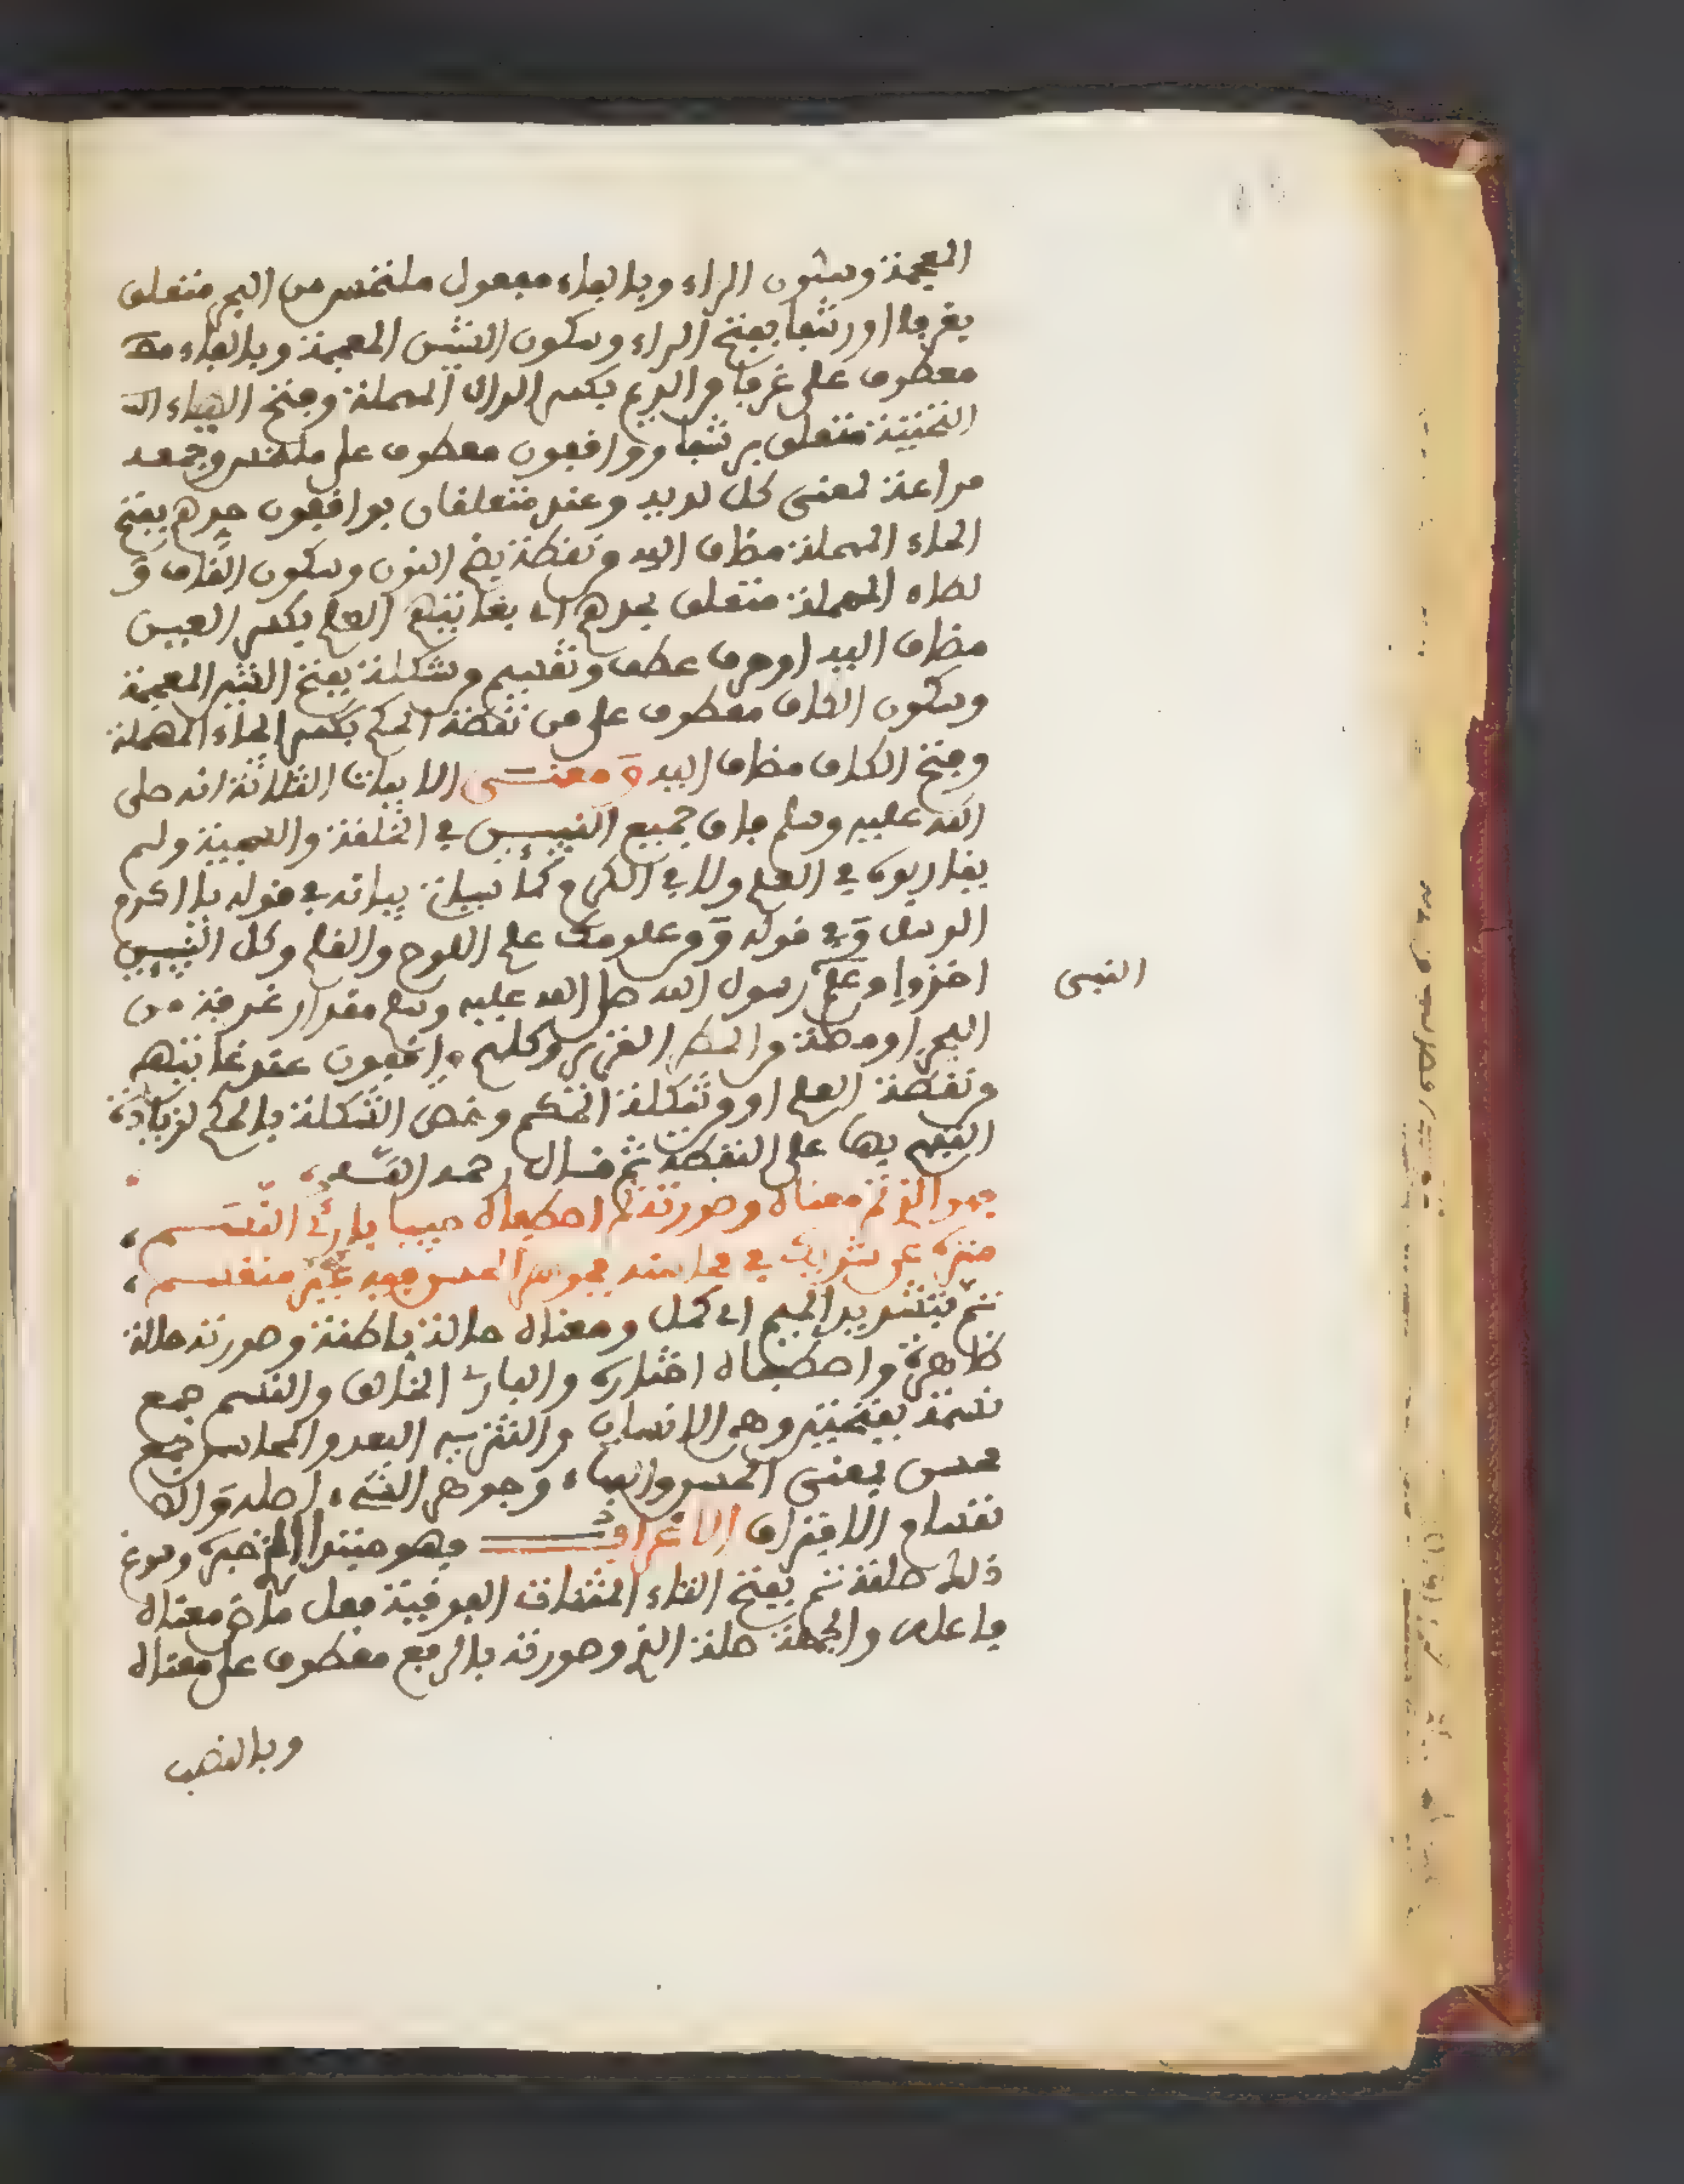 المعجمة وسكون الراء وبالفاء مفعول ملتمس من البحر متعلق
بغرفا او رشفا بفتح الراء وسكون الشين المعجمة وبالفاء مصد
معطوف على غرفا من الديم بكسر الدال المهملة وفتح الياء الت
التحتية متعلق برشفا وواقفون معطوف على ملتمس وجمعه
مراعة لمعنى كل لديه وعند متعلقان بواقفون حدهم بفتح
الحاء المهملة مضاف اليه من نقطة بضم النون وسكون القاف و
لطاء المهملة متعلق بحدهم اي بغايتهم العلم بكسر العين
مضاف اليه او حرف عطف وتقسيم من شكلة بفتح الشين المعجمة
وسكون الكاف معطوف على من نقطة الحكم بكسر الحاء المهملة
وفتح الكاف مضاف اليه ومعنى الابيات الثلاثة انه صلى
الله عليه وسلم فاق جميع النبيين في الخلقة والسجية ولم
يقاربوه في العلم ولا في الكرم كما سياتي بيانه في قوله يا اكرم
الرسل وفي قوله ومن علومك علم اللوح والقلم وكل النبيين
اخذوا من علم رسول الله صلى الله عليه وسلم مقدار غرفة من
النبى
البحر او مصة من المطر الغزير وكلهم واقفون عند غايتهم
من نقطة العلم او من شكلة الحكم وخص الشكلة بالحكم لزيادة
الفهم بها على النقطة ثم قال رحمه الله
فهو الذي تم معناه وصورته ثم اصطفاه حبيبا بارئ النسم
منزه عن شريك في محاسنه فجوهر الحسن فيه غير منقسم
تم بتشديد الميم اي كمل ومعناه حالة باطنة وصورته حالة
ظاهرة واصطفاه اختاره والبارئ الخالق والنسم جمع
نسمة بفتحتين وهو الانسان والتنزيه البعد والمحاسن جمع
محسن بمعنى الحسن والبهاء وجوهر الشيء اصله والا
نقسام الافتراق الاعراب فهو مبتدا الذي خبره وسوغ
ذلك صلته تم بفتح التاء المثناة الفوقية فعل ماض معناه
فاعله والجملة صلة الذي وصورته بالرفع معطوف على معناه
وبالنصب